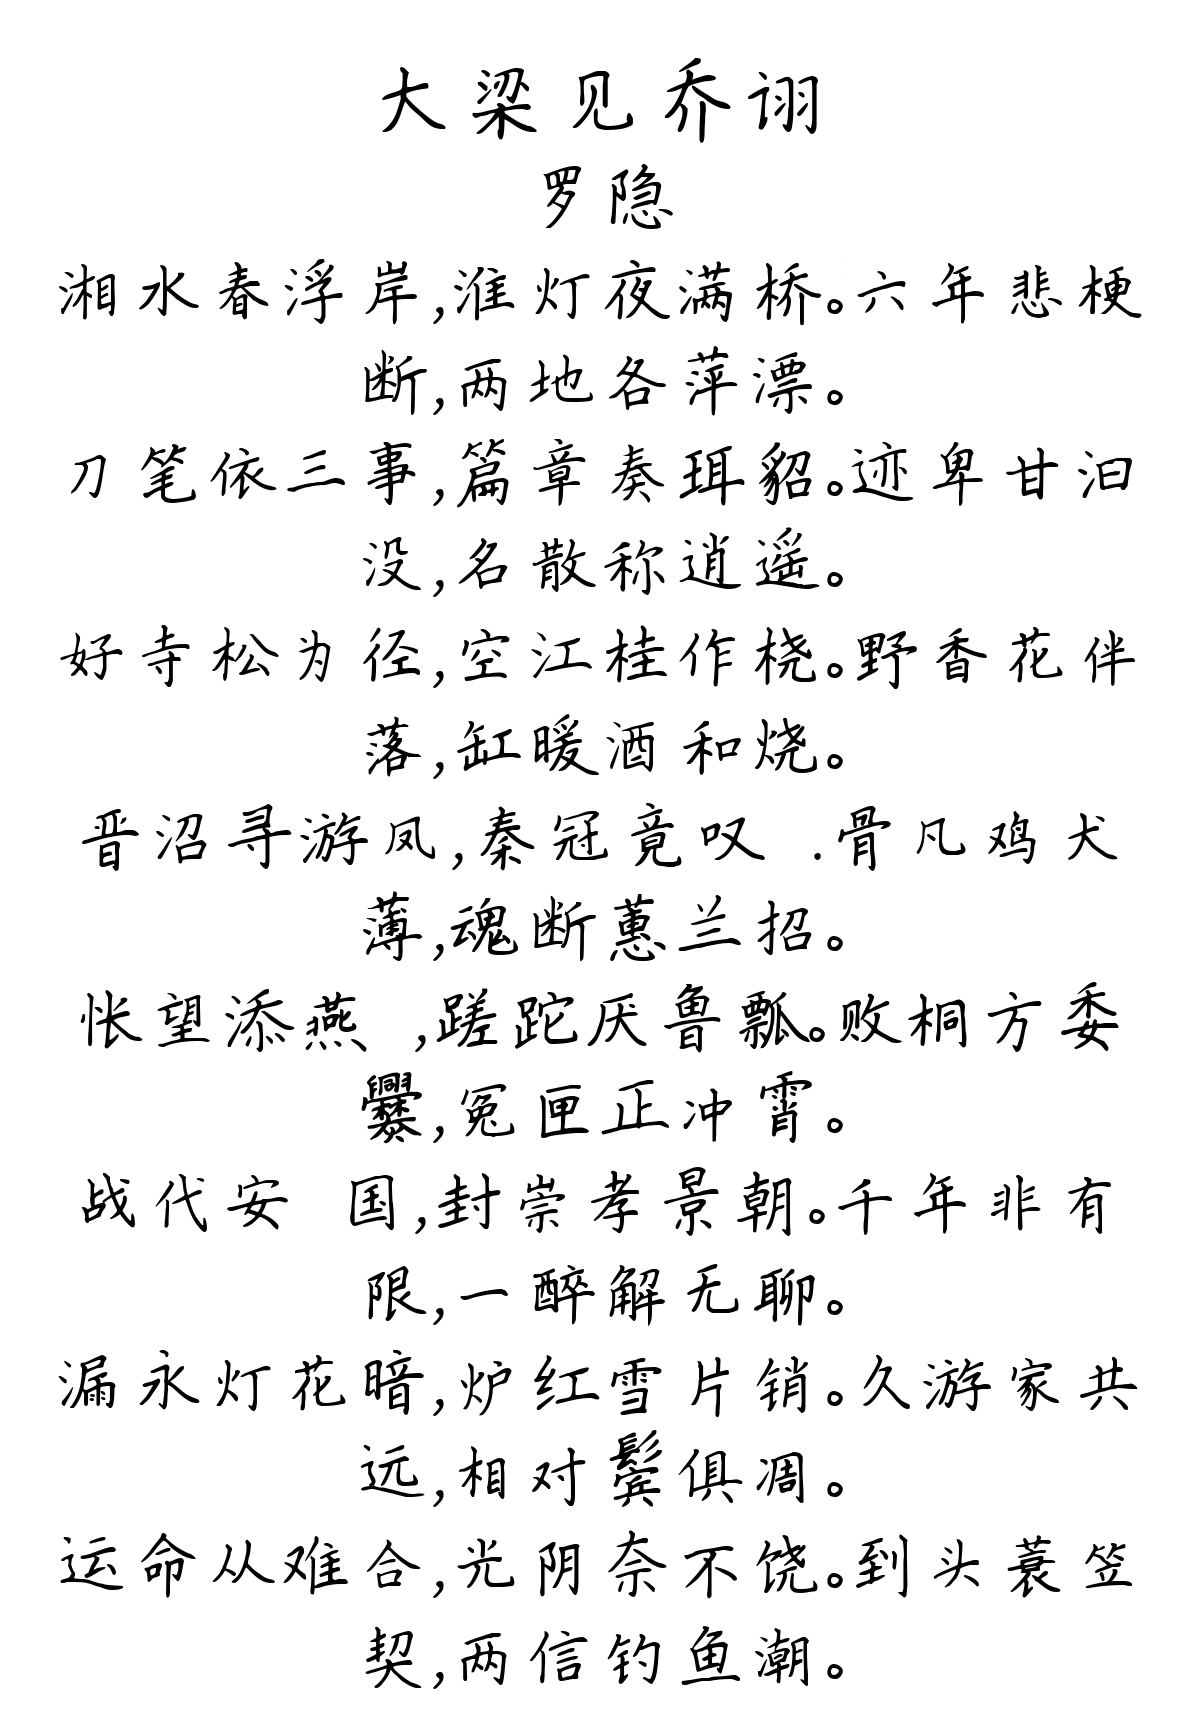 大梁见乔诩
罗隐
湘水春浮岸,淮灯夜满桥。六年悲梗
断,两地各萍漂。
刀笔依三事,篇章奏珥貂。迹卑甘汩
没,名散称逍遥。
好寺松为径,空江桂作桡。野香花伴
落,缸暖酒和烧。
晋沼寻游凤,秦冠竟叹 .骨凡鸡犬
薄,魂断蕙兰招。
怅望添燕 ,蹉跎厌鲁瓢。败桐方委
爨,冤匣正冲霄。
战代安 国,封崇孝景朝。千年非有
限,一醉解无聊。
漏永灯花暗,炉红雪片销。久游家共
远,相对鬓俱凋。
运命从难合,光阴奈不饶。到头蓑笠
契,两信钓鱼潮。